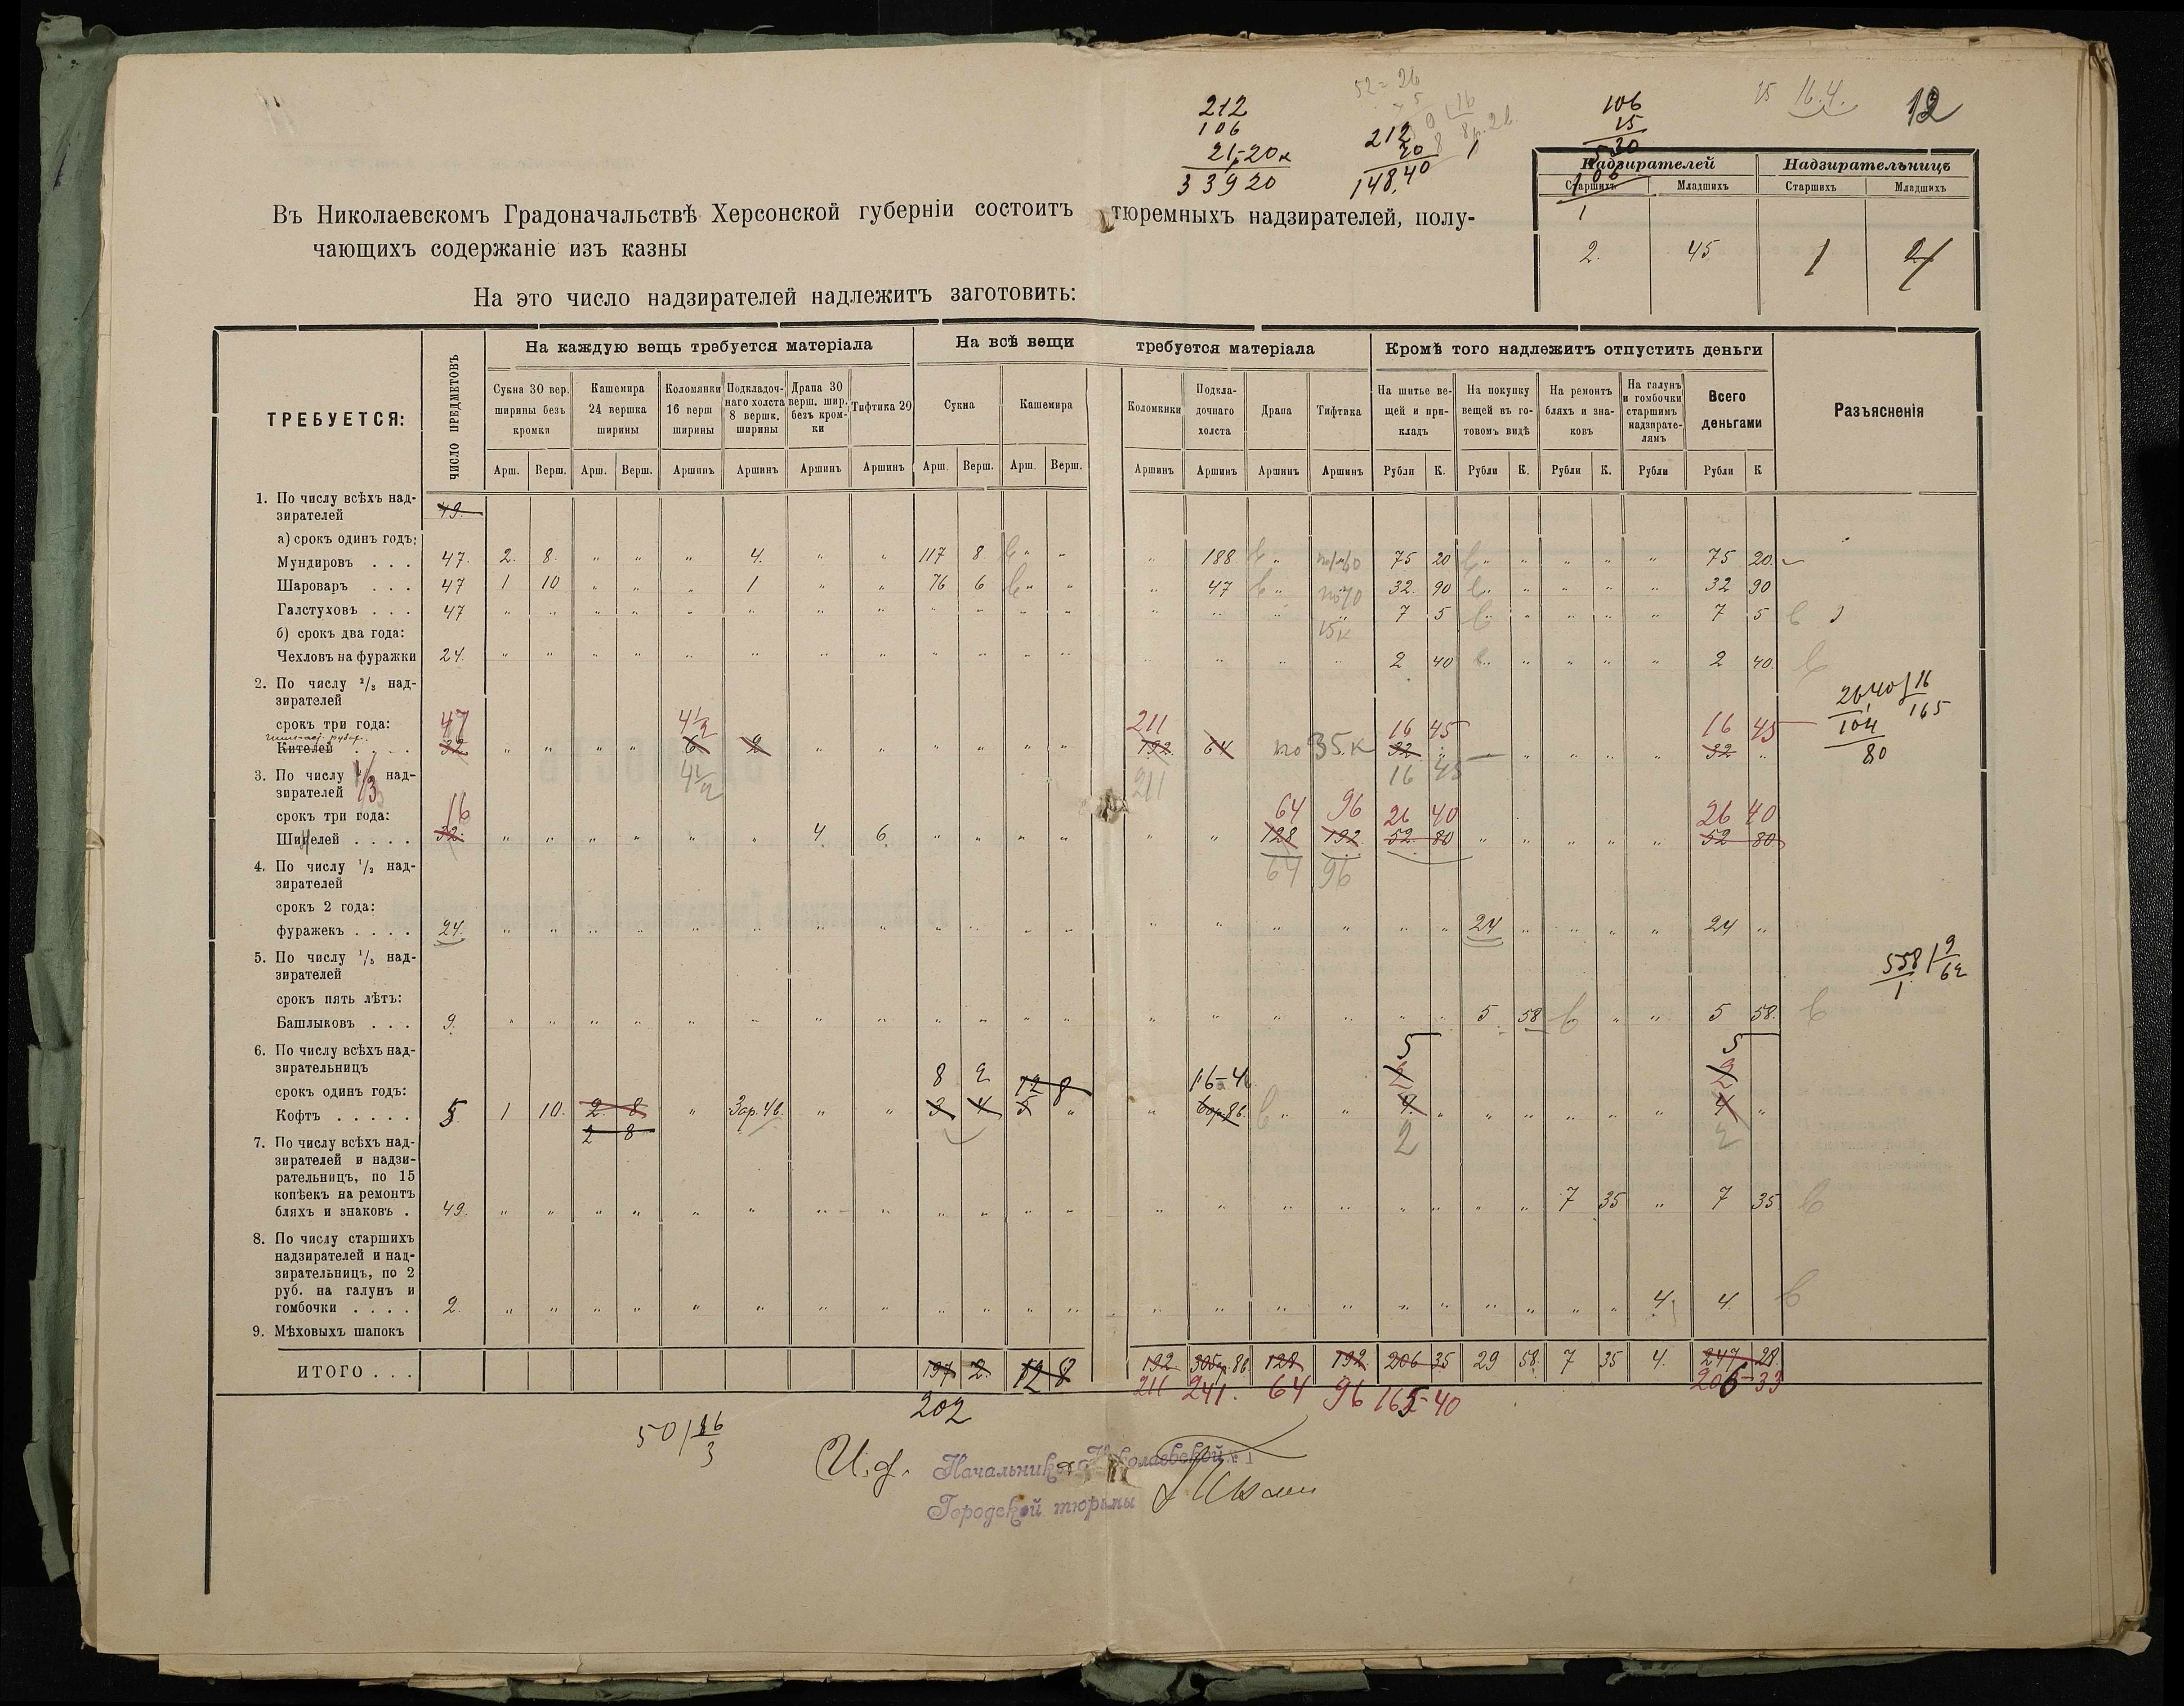 212
106
21-20к
339 20
52 = 26
212
70
148,40
106
15
530
106
1
15 16.4.
12
Надзирателей Надзирательницъ
Старшихъ Младшихъ Старшихъ Младшихъ
2. 45 1 4
Въ Николаевскомъ Градоначальствѣ Херсонской губерніи состоитъ тюремныхъ надзирателей, полу-
чающихъ содержаніе изъ казны
На это число надзирателей надлежитъ заготовить:
ТРЕБУЕТСЯ: ЧИСЛО ПРЕДМЕТОВЪ На каждую вещь требуется матеріала На всѣ вещи требуется матеріала Кромѣ того надлежитъ отпустить деньги Разъясненія
Сукна 30 вер. ширины безъ кромки Кашемира 24 вершка ширины Коломянки 16 верш ширины Подкладоч-наго холста 8 вершк. ширины Драпа 30 верш. шир. безъ кром-ки Тифтика 29 Сукна Кашемира Коломянки Подкла-дочнаго холста Драпа Тифтика На шитье ве-щей и при-кладъ На покупку вещей въ го-товомъ видѣ На ремонтъ бляхъ и зна-ковъ На галунъ и гомбочки старшимъ надзирате-лямъ Всего деньгами
Арш. Верш. Арш. Верш. Аршинъ Аршинъ Аршинъ Аршинъ Арш. Верш. Арш. Верш. Аршинъ Аршинъ Аршинъ Аршинъ Рубли К. Рубли К. Рубли К. Рубли Рубли К
1. По числу всѣхъ над-
зирателей 49.
а) срокъ одинъ годъ:
Мундировъ . . . 47. 2. 8. " " " 4. " " 117 8 " " " 188 " 75 20 " " " " " 75 20.
Шароваръ . . . 47 1 10 " " " 1 " " 76 6 " " " 47 " 32. 90 " " " " " 32 90
Галстуховъ . . . 47 " " " " " " " " " " " " " " " 7 5 " " " " " 7 5
15к
б) срокъ два года:
Чехловъ на фуражки 24. " " " " " " " " " " " " " " " " 2 40 " " " " " 2 40.
2. По числу ²/₃ над-
зирателей
срокъ три года: 47 4½ 211 16 45 16 45
Кителей . . . . 32 " " " " 6 2 " " " " " " 192 64 по 35.к 32 " " " " " 32 "
4½ 211 16 45
26,40 | 16
104 165
80
3. По числу ⅓ над-
зирателей
срокъ три года: 16 64 96 26 40 26 40
Шинелей . . . . 32. " " " " " " 4 6. " " " " " " 128 192. 52 80 " " " " " 52 80
64 96
4. По числу ¹/₂ над-
зирателей
срокъ 2 года:
фуражекъ . . . . 24. " " " " " " " " " " " " " " " " " " 24 " " " " 24 "
5. По числу ¹/₅ над-
зирателей
558 | 9
1 62
срокъ пять лѣтъ:
Башлыковъ . . . 9. " " " " " " " " " " " " " " " " " " 5 58 " " 5 58.
6. По числу всѣхъ над-
зирательницъ 5 5
срокъ одинъ годъ: 8 2 12 8 16-4 2 2
Кофтъ . . . . . 5 1 10. 2. 8 " 3ар.4в. " " 3 4 5 " " 6ар8в. " " 4. " " " " " " 4 "
2 8 2 2
7. По числу всѣхъ над-
зирателей и надзи-
рательницъ, по 15
копѣекъ на ремонтъ
бляхъ и знаковъ . 49. " " " " " " " " " " " " " " " " " " " " 7 35 " 7 35
8. По числу старшихъ
надзирателей и над-
зирательницъ, по 2
руб. на галунъ и
гомбочки . . . . 2. " " " " " " " " " " " " " " " " " " " " " " 4. 4.
9. Мѣховыхъ шапокъ
ИТОГО . . . 197 2. 12 8 192 305ар.8в. 128 192. 206 35 29 58. 7 35 4. 247 28.
202 211 241. 64 96 165-40 206-33
50 | 16
3
И.д. Начальника Николаевской № 1
Городской тюрьмы